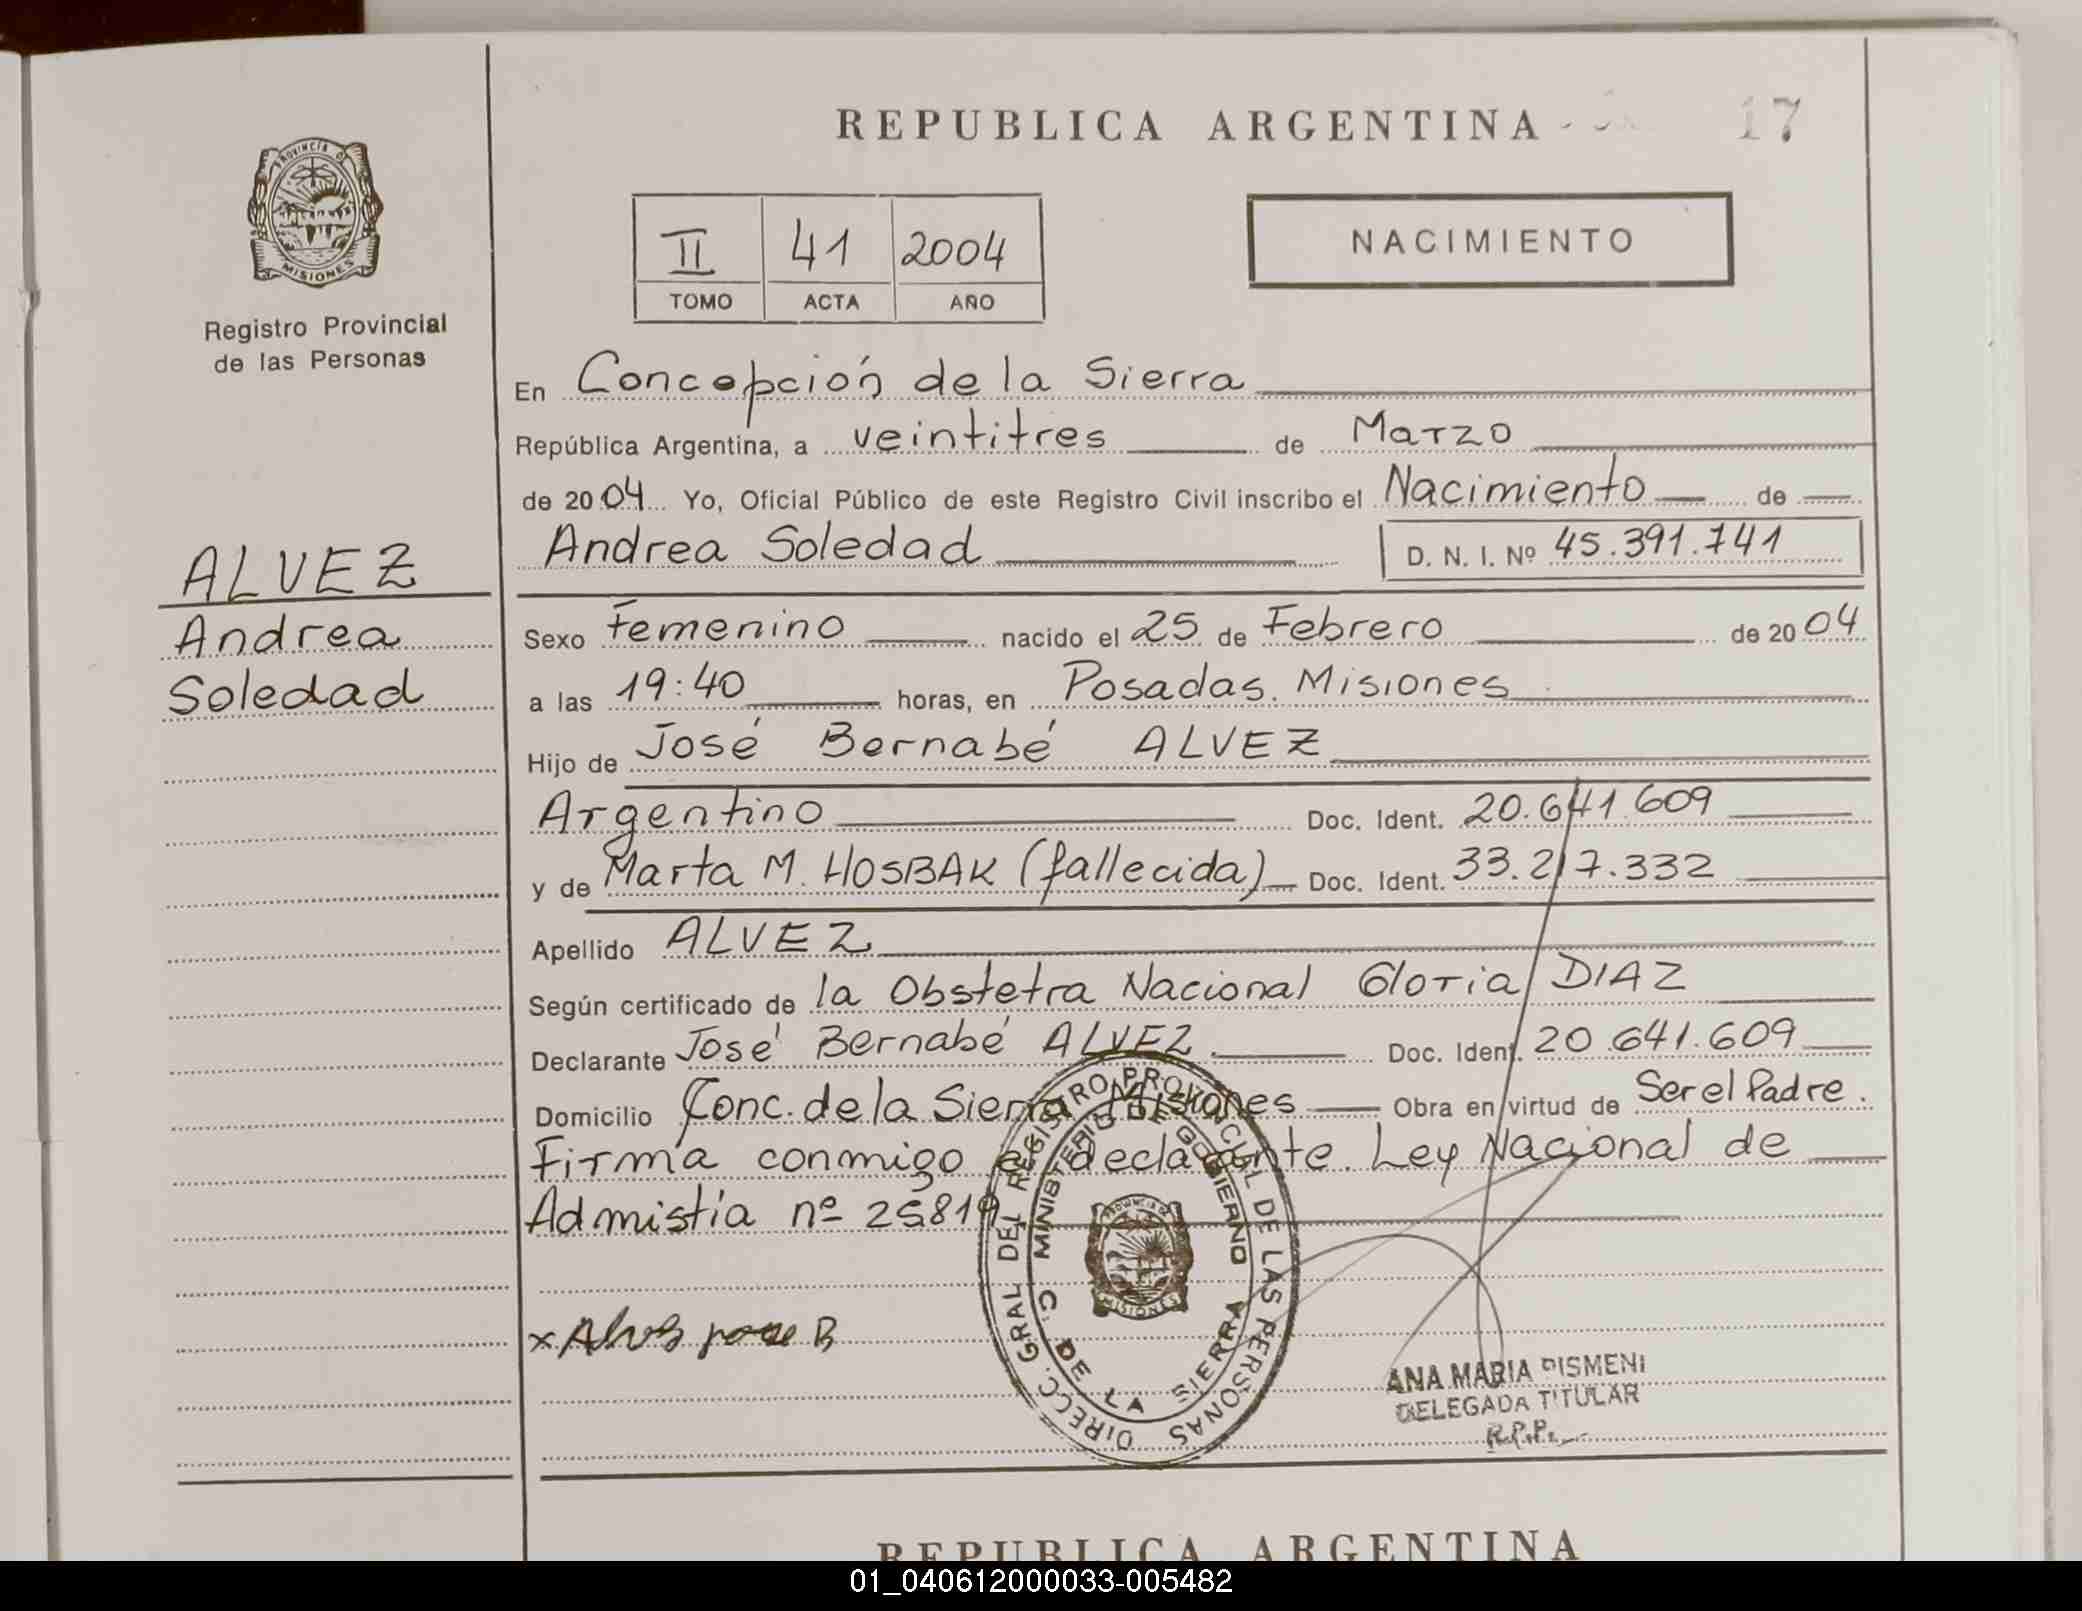 REPUBLICA ARGENTINA
17
PROVINCIA DE
MISIONES
Registro Provincial
de las Personas
II 41 2004
TOMO ACTA AÑO
NACIMIENTO
En Concepción de la Sierra
República Argentina, a veintitres de Marzo
de 2004 Yo, Oficial Público de este Registro Civil inscribo el Nacimiento de
Andrea Soledad D. N. I. Nº 45.391.741
ALVEZ
Andrea
Soledad
Sexo Femenino nacido el 25 de Febrero de 2004
a las 19:40 horas, en Posadas. Misiones
Hijo de José Bernabé ALVEZ
Argentino Doc. Ident. 20.641.609
y de Marta M. HOSBAK (fallecida) Doc. Ident. 33.217.332
Apellido ALVEZ
Según certificado de la Obstetra Nacional Gloria DIAZ
Declarante José Bernabé ALVEZ Doc. Ident. 20.641.609
Domicilio Conc. de la Sierra Misiones Obra en virtud de Ser el Padre.
Firma conmigo el declarante. Ley Nacional de
Admistía nº 25819
DIRECC. GRAL DEL REGISTRO PROVINCIAL DE LAS PERSONAS
MINISTERIO DE GOBIERNO
C. DE LA SIERRA
MISIONES
x Alvez jose B
ANA MARIA PISMENI
DELEGADA TITULAR
R.P.P.
REPUBLICA ARGENTINA
01_040612000033-005482